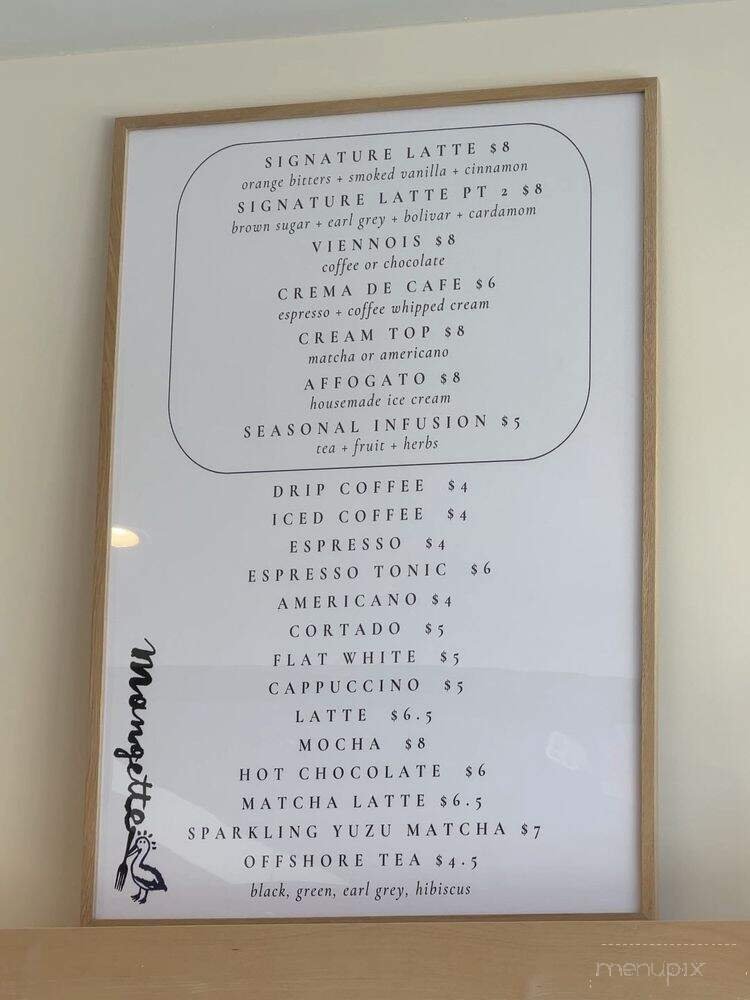 SIGNATURE LATTE $8
orange bitters + smoked vanilla + cinnamon
SIGNATURE LATTE PT 2 $8
brown sugar + earl grey + bolivar + cardamom
VIENNOIS $8
coffee or chocolate
CREMA DE CAFE $6
espresso + coffee whipped cream
CREAM TOP $8
matcha or americano
AFFOGATO $8
housemade ice cream
SEASONAL INFUSION $5
tea + fruit + herbs
DRIP COFFEE $4
ICED COFFEE $4
ESPRESSO $4
ESPRESSO TONIC $6
AMERICANO $4
CORTADO $5
FLAT WHITE $5
CAPPUCCINO $5
LATTE $6.5
MOCHA $8
HOT CHOCOLATE $6
MATCHA LATTE $6.5
SPARKLING YUZU MATCHA $7
OFFSHORE TEA $4.5
black, green, earl grey, hibiscus
mangette
menupix